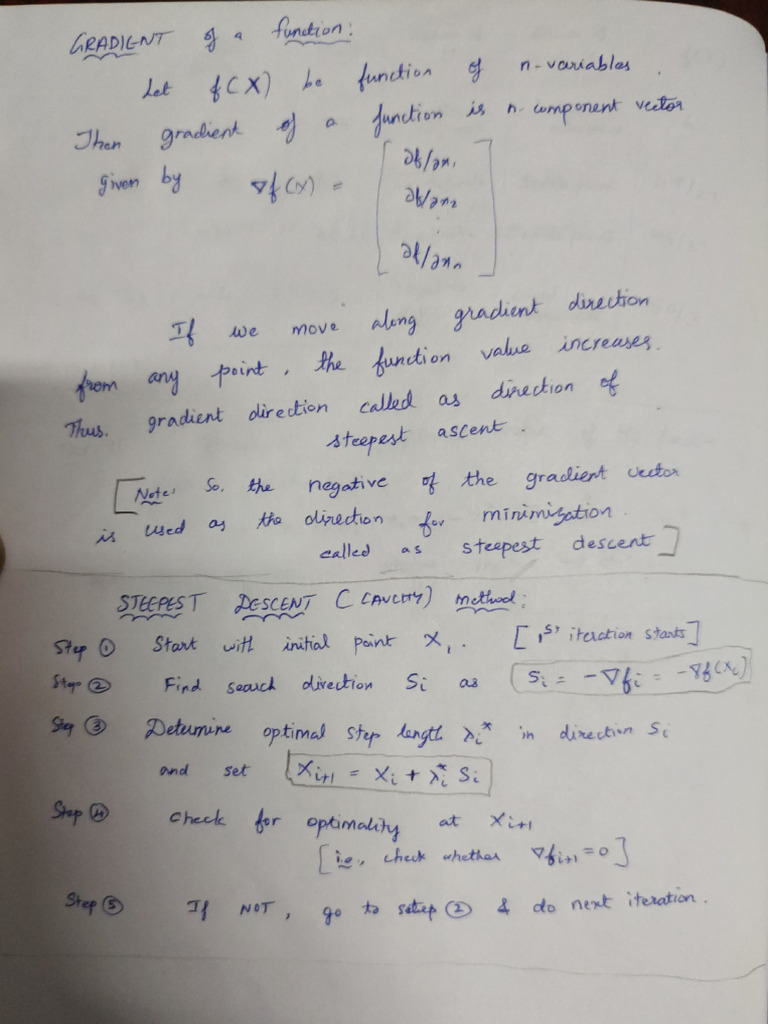 GRADIENT of a function:
Let f(X) be function of n-variables.
Then gradient of a function is n-component vector
given by ∇f(X) = [ ∂f/∂x₁
∂f/∂x₂
⋮
∂f/∂xₙ ]
If we move along gradient direction
from any point, the function value increases.
Thus. gradient direction called as direction of
steepest ascent.
[Note: So. the negative of the gradient vector
is used as the direction for minimization.
called as steepest descent]
STEEPEST DESCENT (CAUCHY) method:
Step ① Start with initial point X₁. [1st iteration starts]
Step ② Find search direction Si as Si = -∇fi = -∇f(Xi)
Step ③ Determine optimal step length λi* in direction Si
and set Xi+1 = Xi + λi* Si
Step ④ check for optimality at Xi+1
[i.e., check whether ∇fi+1 = 0]
Step ⑤ If NOT, go to setep ② & do next iteration.